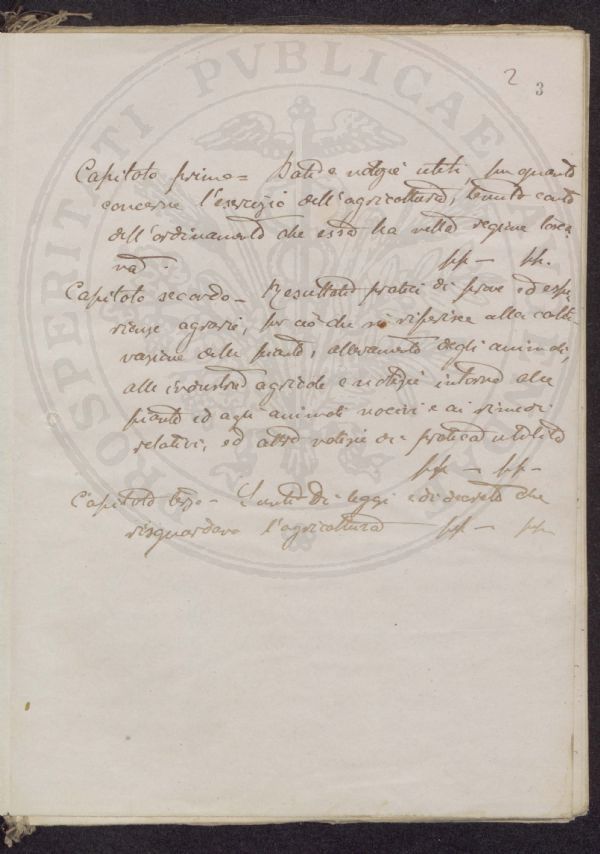 2
3
Capitolo primo = Dati e notizie utili, per quanto
concerne l'esercizio dell'agricoltura, tenuto conto
dell'ordinamento che essa ha nella regione tosca-
na.
pp — pp.
Capitolo secondo — Resultati pratici di prove ed espe-
rienze agrarie, per ciò che si riferisce alla colti-
vazione delle piante, allevamento degli animali,
alle industrie agricole e notizie intorno alle
piante ed agli animali nocivi e ai rimedi
relativi, ed altre notizie di pratica utilità
pp — pp —
Capitolo terzo — Sunti di leggi e di decreti che
risguardano l'agricoltura pp — pp
PROSPERITATI PVBLICAE